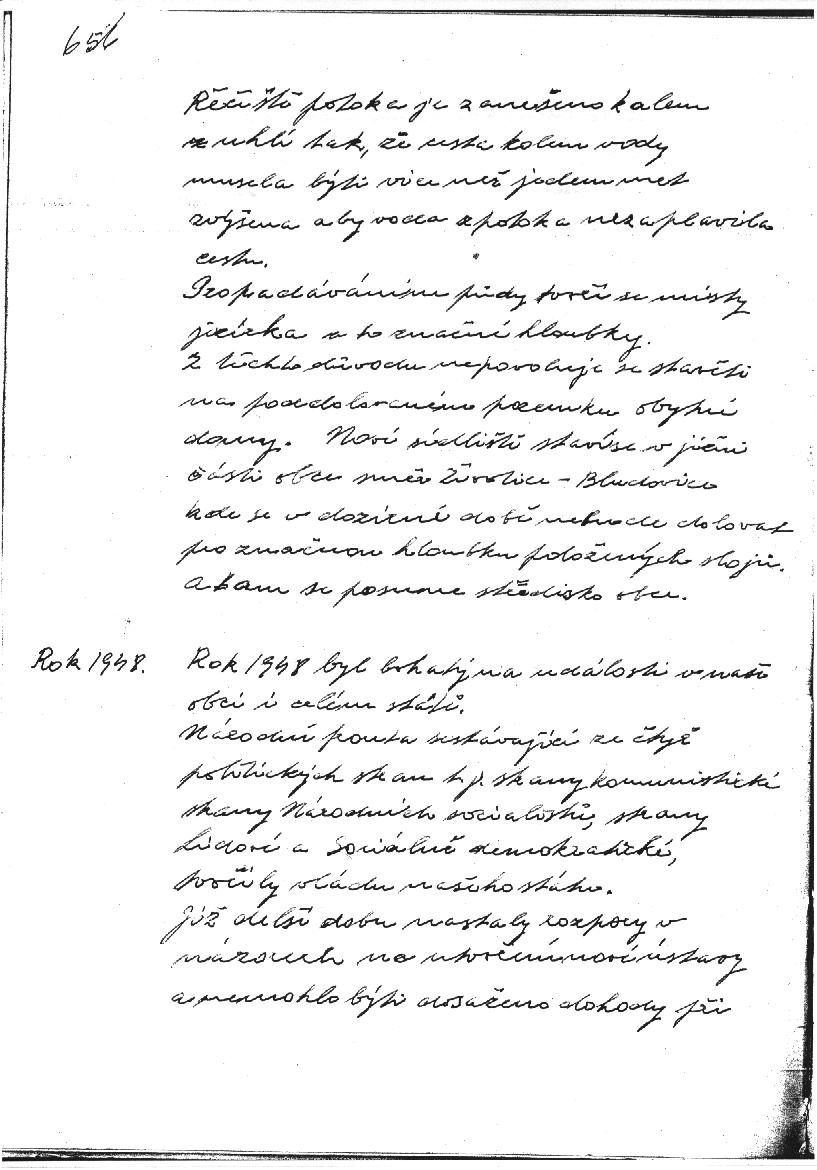 65b
Řečiště potoka je zanešeno kalem
z uhlí tak, že cesta kolem vody
musela býti více než jeden met
zvýšena aby voda z potoka nezaplavila
cestu.
Propadáváním půdy tvoří se místy
jezírka a to značné hloubky.
Z těchto důvodu nepovoluje se stavěti
na poddolovaném pozemku obytné
domy. Nové sídliště staví se v jižní
části obce směr Životice - Bludovice
kde se v dozírné době nebude dolovat
pro značnou hloubku položených slojů.
a tam se posune středisko obce.
Rok 1948. Rok 1948 byl bohatý na události v naši
obci i celém státě.
Národní fronta sestávající ze čtyř
politických stran t.j. strany komunistické
strany Národních socialistů, strany
Lidové a Sociálně demokratické,
tvořily vládu našeho státu.
Již delší dobu nastaly rozpory v
názorech na utvoření nové ústavy
a nemohlo býti dosaženo dohody při